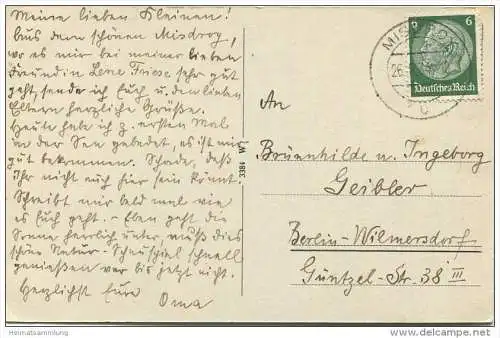 Meine lieben Kleinen!
Aus dem schönen Misdroy,
wo es mir bei meiner lieben
Freundin Lene Friese sehr gut
geht, sende ich Euch u. den lieben
Eltern herzliche Grüße.
Heute habe ich z. ersten Mal
in der See gebadet, es ist mir
gut bekommen. Schade, daß
Ihr nicht auch hier sein könnt.
Schreibt mir bald mal wie
es Euch geht. - Eben geht die
Sonne herrlich unter, muß dies
schöne Natur-Schauspiel schnell
genießen war bis jetzt nicht.
Herzlichst Eure
Oma
3384 W
MISDROY
6
Deutsches Reich
An
Brünnhilde u. Ingeborg
Geibler
Berlin-Wilmersdorf
Güntzel-Str. 38 III
Heimatsammlung
delcampe.net